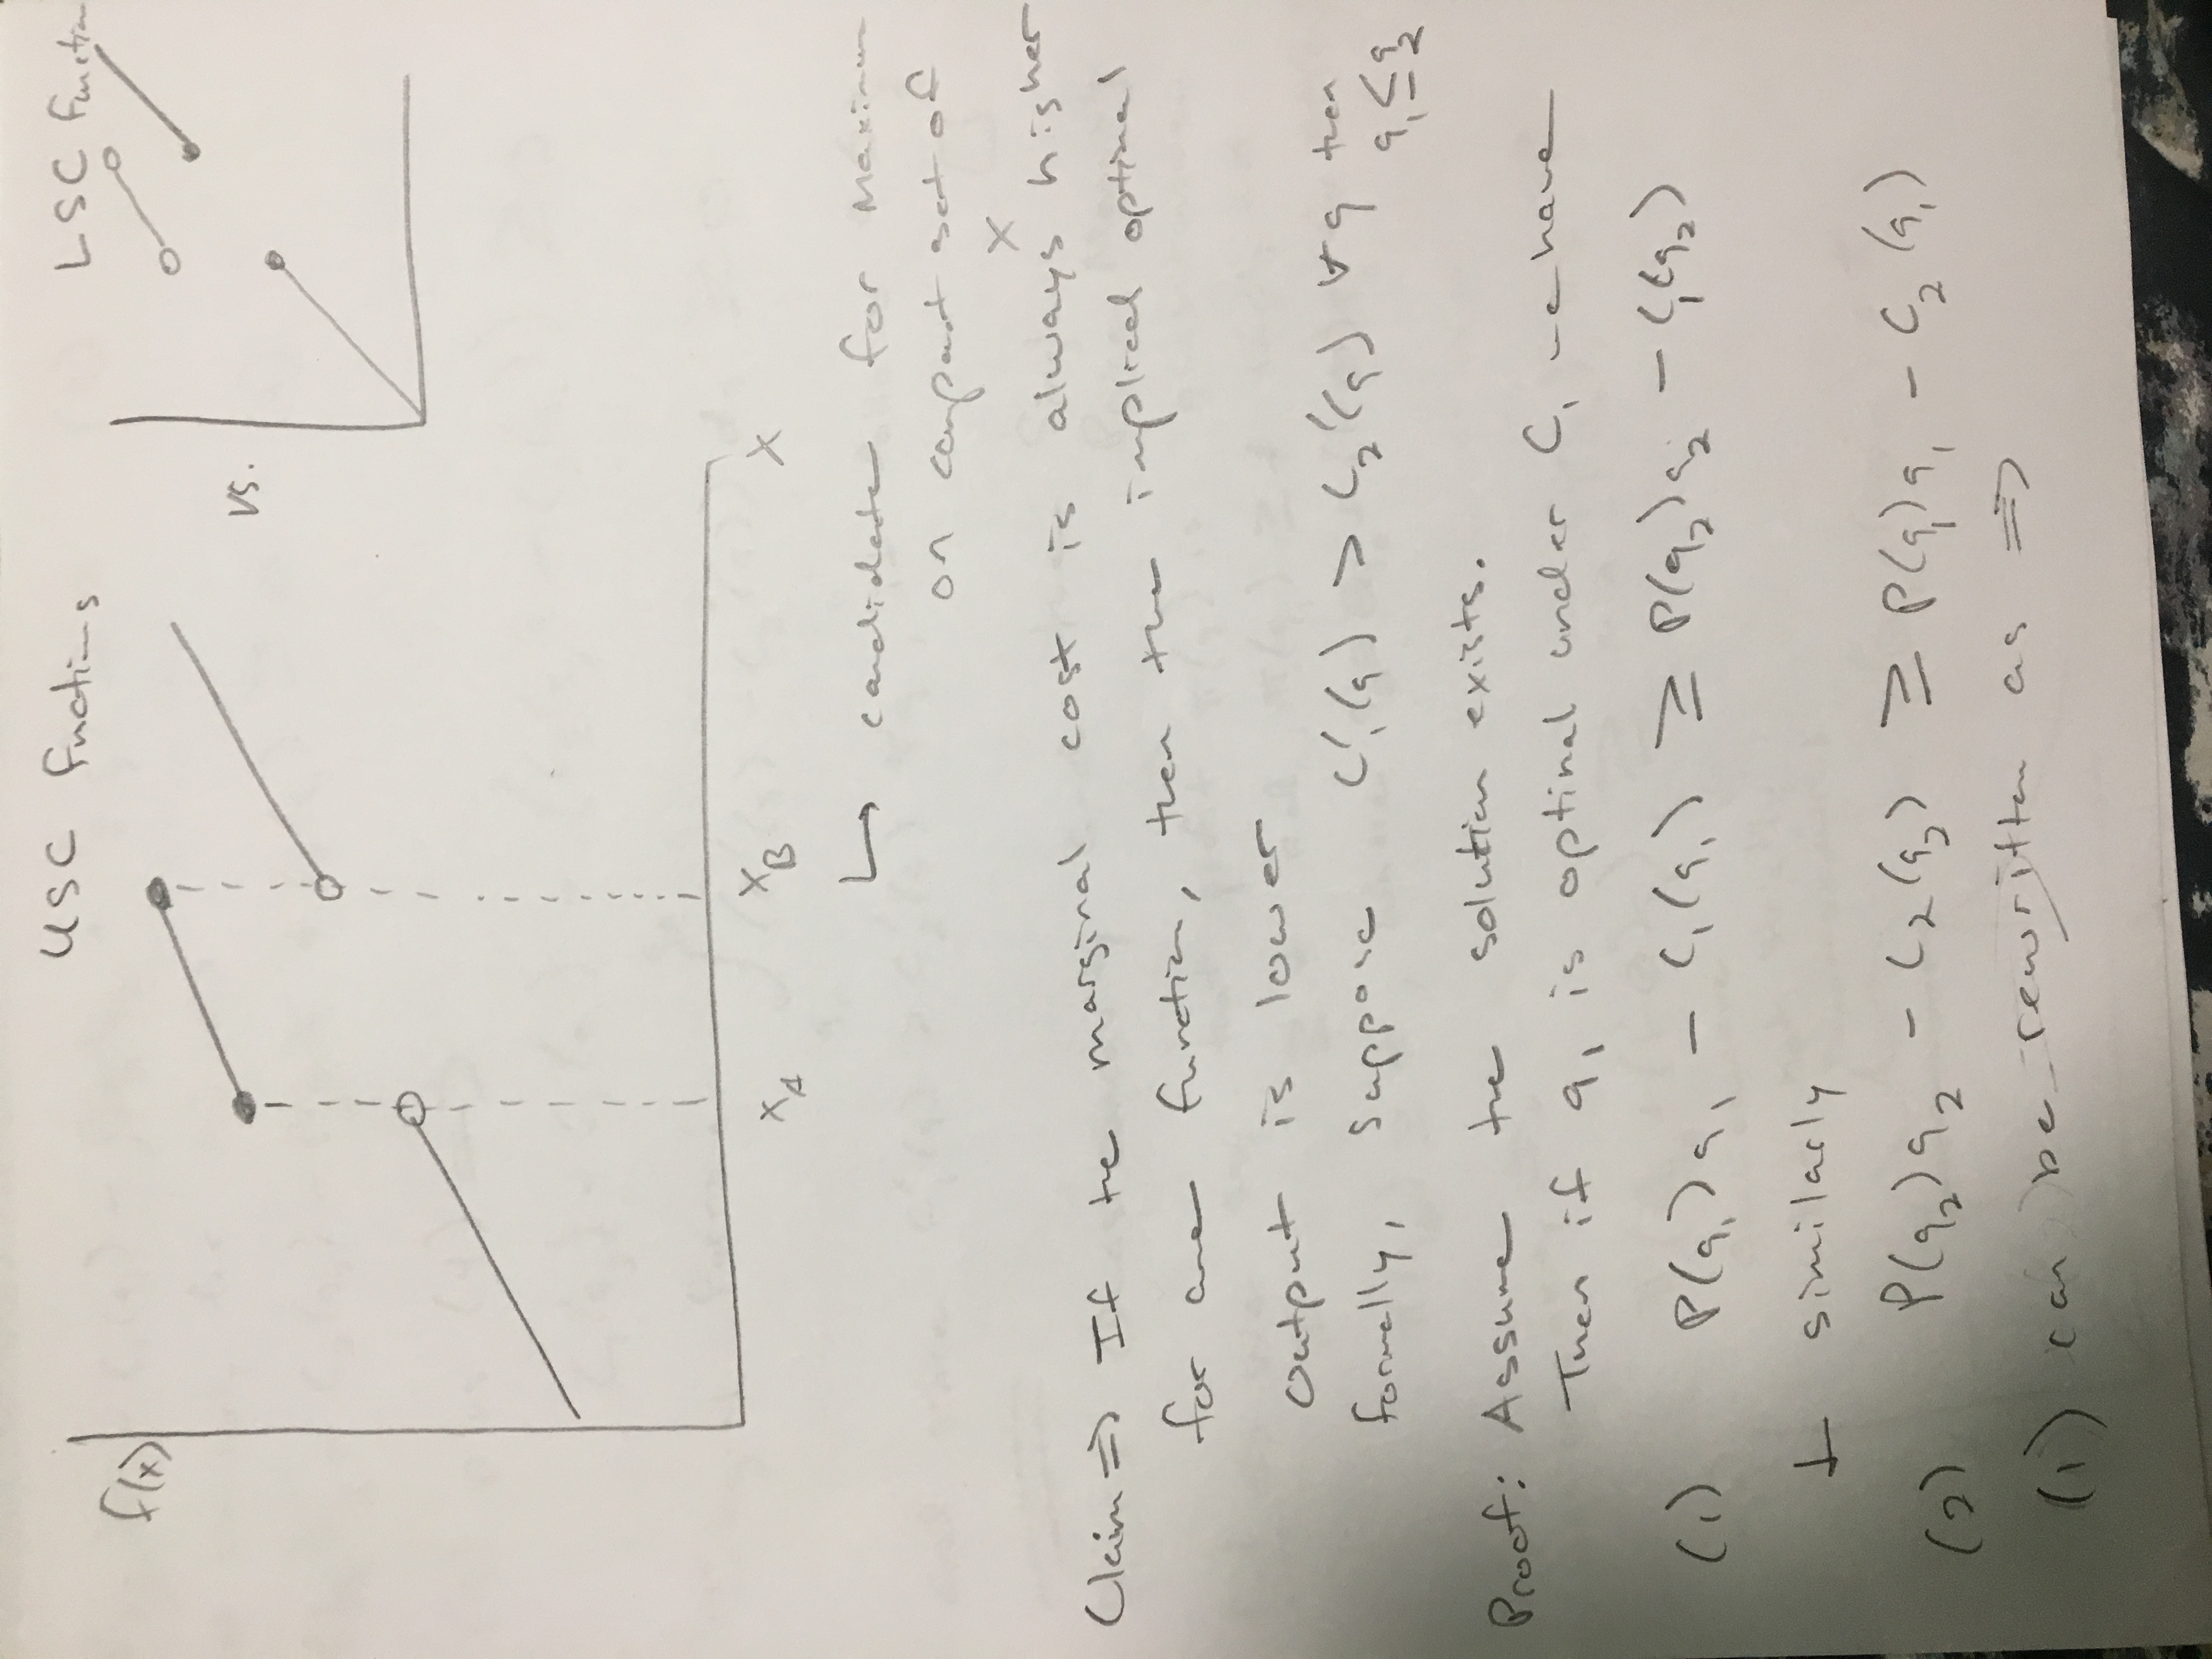 USC Functions
LSC Function
f(x)
vs.
x_A
x_B
x
↳ candidate for Maximum
on compact set of
x
Claim ⇒ If the marginal cost is always higher
for one function, then the implied optimal
output is lower
formally, suppose C₁'(q) > C₂'(q) ∀q then
q₁ ≤ q₂
Proof: Assume the solution exists.
Then if q₁ is optimal under C₁ we have
(1) P(q₁)q₁ - C₁(q₁) ≥ P(q₂)q₂ - C₁(q₂)
⊥ similarly
(2) P(q₂)q₂ - C₂(q₂) ≥ P(q₁)q₁ - C₂(q₁)
(1) can be rewritten as ⇒